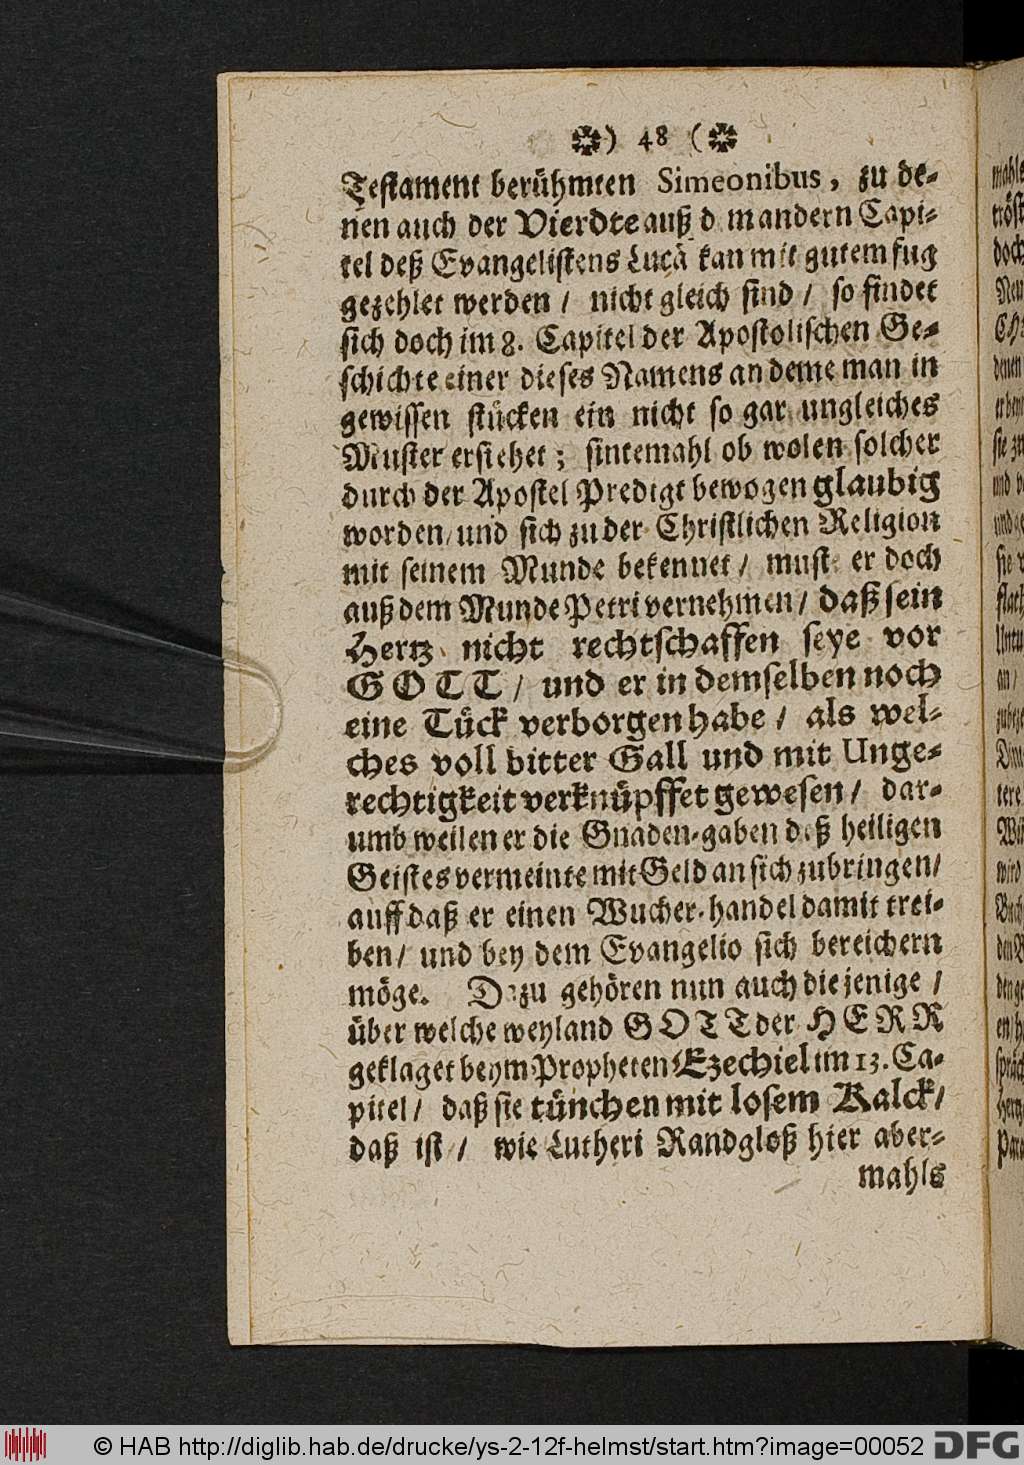 ✼) 48 (✼
Testament berühmten Simeonibus, zu de-
nen auch der Vierdte auß d m andern Capi-
tel deß Evangelistens Lucä kan mit gutem fug
gezehlet werden / nicht gleich sind / so findet
sich doch im 8. Capitel der Apostolischen Ge-
schichte einer dieses Namens an deme man in
gewissen stücken ein nicht so gar ungleiches
Muster ersiehet; sintemahl ob wolen solcher
durch der Apostel Predigt bewogen glaubig
worden/ und sich zu der Christlichen Religion
mit seinem Munde bekennet / must er doch
auß dem Munde Petri vernehmen / daß sein
Hertz nicht rechtschaffen seye vor
GOTT / und er in demselben noch
eine Tück verborgen habe / als wel-
ches voll bitter Gall und mit Unge-
rechtigkeit verknüpffet gewesen / dar-
umb weilen er die Gnaden-gaben deß heiligen
Geistes vermeinte mit Geld an sich zubringen/
auff daß er einen Wucher-handel damit trei-
ben / und bey dem Evangelio sich bereichern
möge. Dazu gehören nun auch die jenige /
über welche weyland GOTT der HERR
geklaget beym Propheten Ezechiel im 13. Ca-
pitel / daß sie tünchen mit losem Kalck/
daß ist / wie Lutheri Randgloß hier aber-
mahls
© HAB http://diglib.hab.de/drucke/ys-2-12f-helmst/start.htm?image=00052
DFG